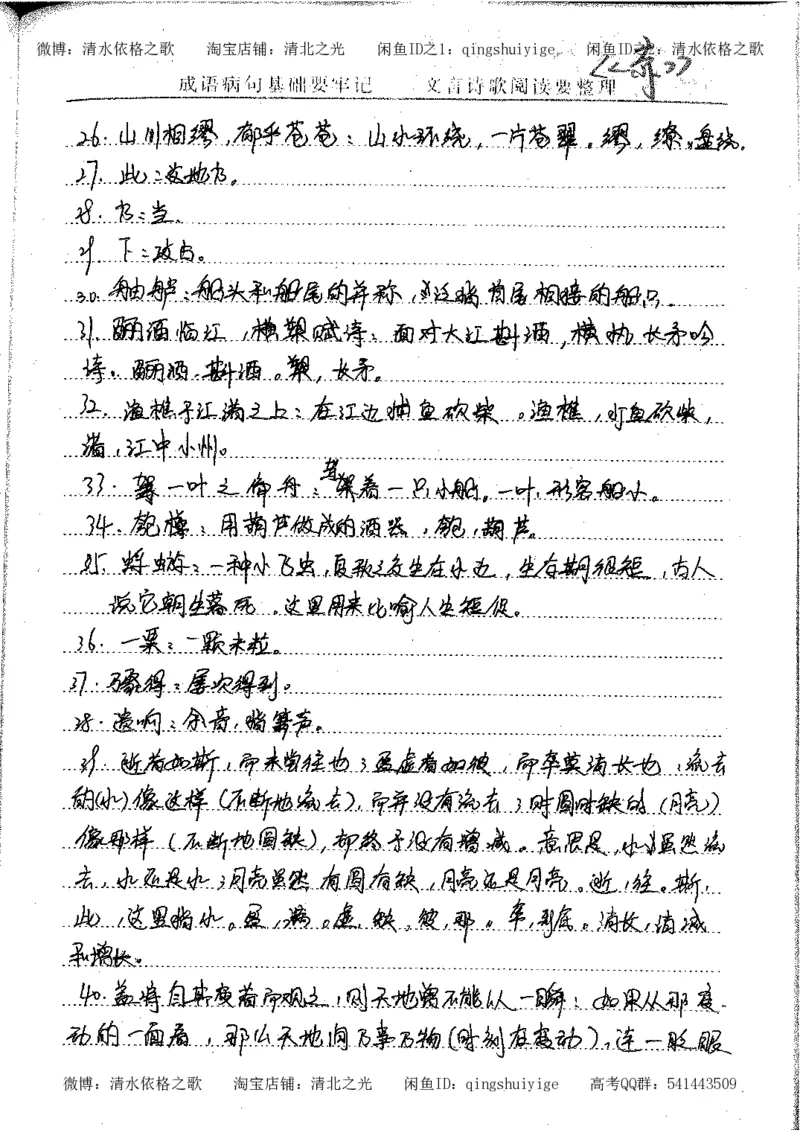 微博：清水依格之歌 淘宝店铺：清北之光 闲鱼ID之1：qingshuiyige 闲鱼ID之2：清水依格之歌
成语病句基础要牢记 文言诗歌阅读要整理
26. 山川相缪，郁乎苍苍：山水环绕，一片苍翠。缪，缭。盘绕。
27. 此：这地方。
28. 方：当。
29. 下：攻占。
30. 舳舻：船头和船尾的并称，泛指首尾相接的船只。
31. 酾酒临江，横槊赋诗：面对大江斟酒，横执长矛吟
诗。酾酒，斟酒。槊，长矛。
32. 渔樵于江渚之上：在江边捕鱼砍柴。渔樵，打鱼砍柴，
渚，江中小洲。
33. 驾一叶之偏舟：驾着一只小船。一叶，形容船小。
34. 匏樽：用葫芦做成的酒器，匏，葫芦。
35. 蜉蝣：一种小飞虫，夏秋之交生在水边，生存期很短，古人
说它朝生暮死。这里用来比喻人生短促。
36. 一粟：一颗米粒。
37. 骤得：屡次得到。
38. 遗响：余音，指箫声。
39. 逝者如斯，而未尝往也；盈虚者如彼，而卒莫消长也：流去
的(水)像这样（不断地流去），而并没有流去；时圆时缺的（月亮）
像那样（不断地圆缺），却终于没有增减。意思是，水虽然流
去，水还是水；月亮虽然有圆有缺，月亮还是月亮。逝，往。斯，
此，这里指水。盈，满。虚，缺。彼，那。卒，到底。消长，消减
和增长。
40. 盖将自其变者而观之，则天地曾不能以一瞬：如果从那变
动的一面看，那么天地间万事万物(时刻在变动)，连一眨眼
微博：清水依格之歌 淘宝店铺：清北之光 闲鱼ID：qingshuiyige 高考QQ群：541443509